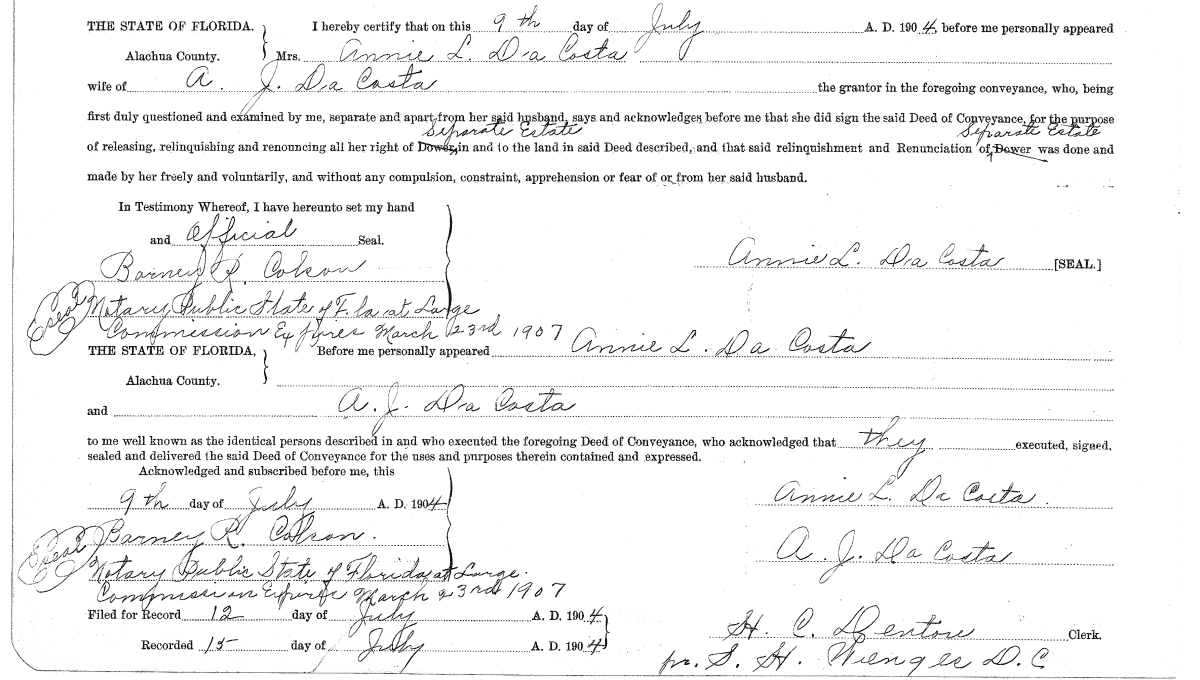 THE STATE OF FLORIDA. } I hereby certify that on this 9th day of July A. D. 1904, before me personally appeared
Alachua County. Mrs. Annie L. Da Costa
wife of A. J. Da Costa the grantor in the foregoing conveyance, who, being
first duly questioned and examined by me, separate and apart from her said husband, says and acknowledges before me that she did sign the said Deed of Conveyance, for the purpose
Separate Estate Separate Estate
of releasing, relinquishing and renouncing all her right of Dower, in and to the land in said Deed described, and that said relinquishment and Renunciation of Dower was done and
made by her freely and voluntarily, and without any compulsion, constraint, apprehension or fear of or from her said husband.
In Testimony Whereof, I have hereunto set my hand
and Official Seal.
Barney R. Colson Annie L. Da Costa [SEAL.]
Seal Notary Public State of Fla at Large
Commission Expires March 23rd 1907
THE STATE OF FLORIDA, } Before me personally appeared Annie L. Da Costa
Alachua County.
and A. J. Da Costa
to me well known as the identical persons described in and who executed the foregoing Deed of Conveyance, who acknowledged that they executed, signed,
sealed and delivered the said Deed of Conveyance for the uses and purposes therein contained and expressed.
Acknowledged and subscribed before me, this
9th day of July A. D. 1904 Annie L. Da Costa.
Seal Barney R. Colson. A. J. Da Costa
Notary Public State of Florida at Large.
Commission Expires March 23rd 1907
Filed for Record 12 day of July A. D. 1904
H. C. Denton Clerk.
Recorded 15 day of July A. D. 1904
pr. S. H. Wienges D. C